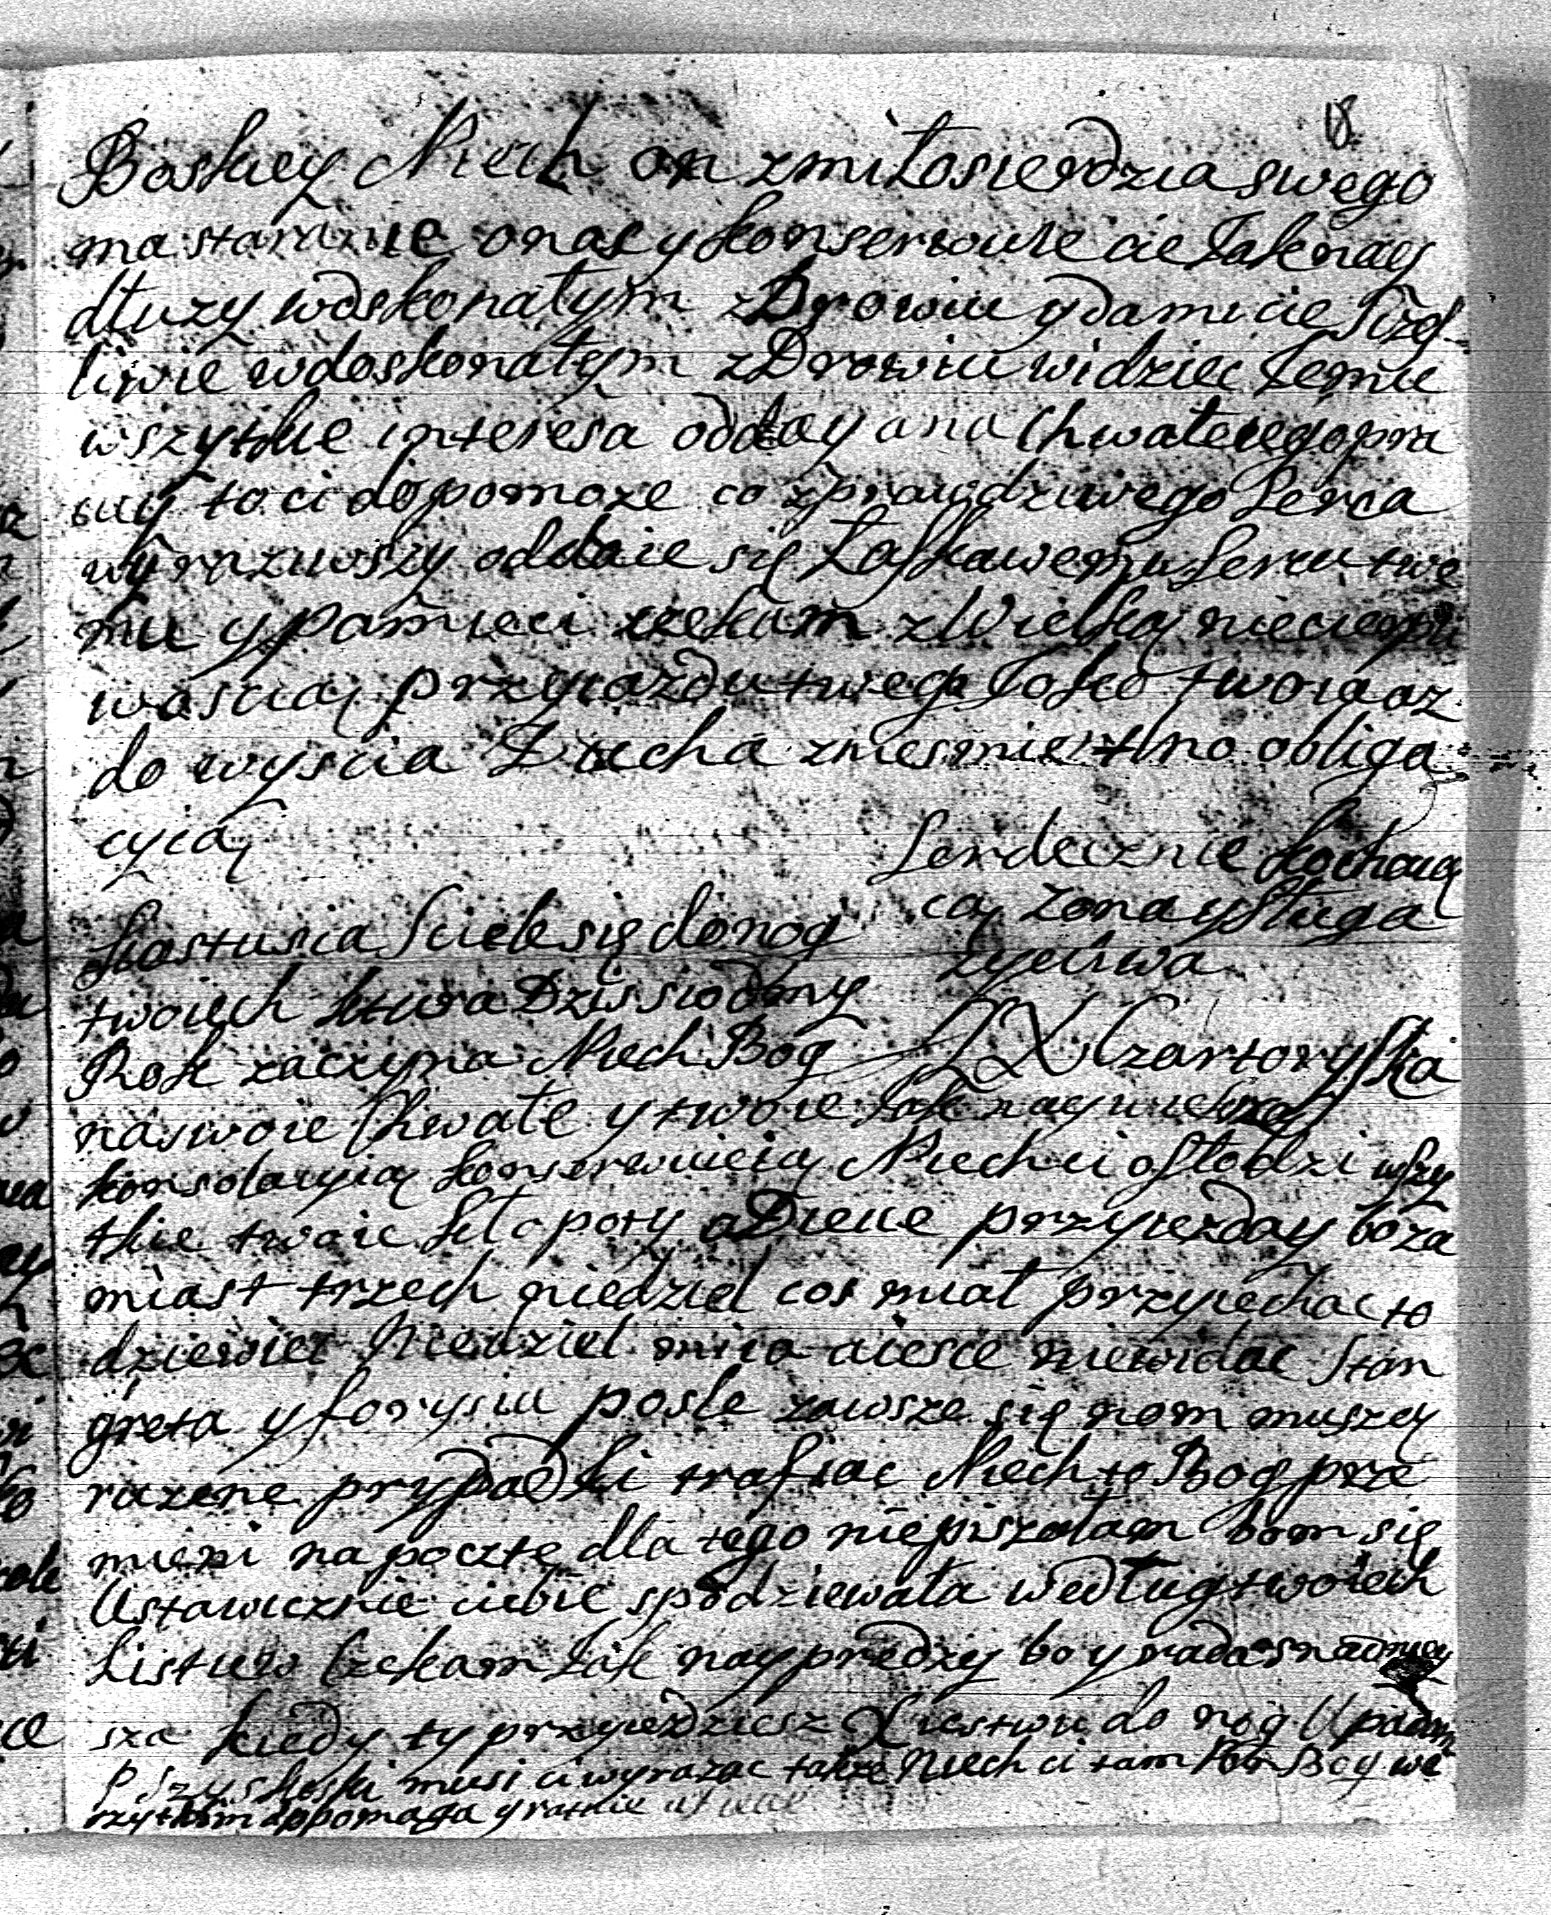 18
Boskiey Niech on zmiłosierdzia swego
ma staranie onas y konserwuie cie Jak nay
dłuzy wdoskonałym zDrowiu y da mi cie Szczęs
liwie wdoskonałym zDrowiu widziec Jemu
wszytkie interesa odday ana Chwałe iego pra
cuy to ci dopomoze co zprawdziwego Serca
wyraziwszy oddaie się Łaskawemu Sercu twe
mu y pamieci czekam zWielką niecierpli
woscią przyiazdu twego Jako twoia az
do wyscia Ducha znieśmiertno obliga
cyią
Serdecznie kochaią
ca Zona y Sługa
zycliwa
Kostusia Sciele się do nog
twoiech ktura Dzis siodmy
Rok zaczyna Niech Bog
X Czartoryska
na swoie Chwałe y twoie Jak naywiekszą
konsolacyią konserwuie ią Niech ci osłodzi wszy
tkie twoie kłopoty aDieue przyiezdzay bo za
miast trzech niedziel cos miał przyiechac to
dziewiec Niedziel miia aiesce niewidac Stan
greta y forysia posle zawsze się nam muszą
rozene przypadki trafiac Niech to Bog prze
mieni na pocztę dla tego niepisałam bom się
Ustawicznie ciebie spodziewała według twoiech
Listuw Czekam Jak nayprędzy bo y rada
sza kiedy ty przyiedziesz do nog Upadam
musi ci wyrazac takze Niech ci tam Pan Bog we
szytkim dopomaga y ratuie